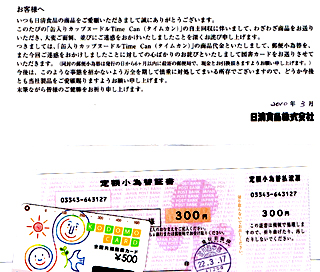 お客様へ
いつも日清食品の商品をご愛顧いただきまして誠にありがとうございます。
このたびの「缶入りカップヌードルTime Can（タイムカン）」の自主回収に伴いまして、わざわざ商品をお送り
いただき、大変ご面倒、並びにご迷惑をおかけいたしましたことを深くお詫び申し上げます。
つきましては、「缶入りカップヌードルTime Can（タイムカン）」の商品代金といたしまして、郵便小為替を、
また今回ご迷惑をおかけしましたことに対しての心ばかりのお詫びといたしまして図書カードをお送りさせて
いただきます。
今後は、このような事態を招かないよう万全を期して慎重に対処してまいる所存でございますので、どうか今後
とも当社製品をご愛顧賜りますようお願い申し上げます。
末筆ながら皆様のご健勝をお祈り申し上げます。
2010年3月
日清食品株式会社
定額小為替証書
定額小為替払渡票
03343-643127
03343-643127
300円
300円
KODOMO
CARD
全国共通図書カード
¥500
22.3.17